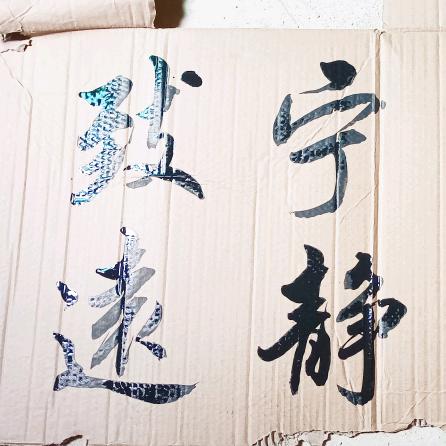 宁静
致远